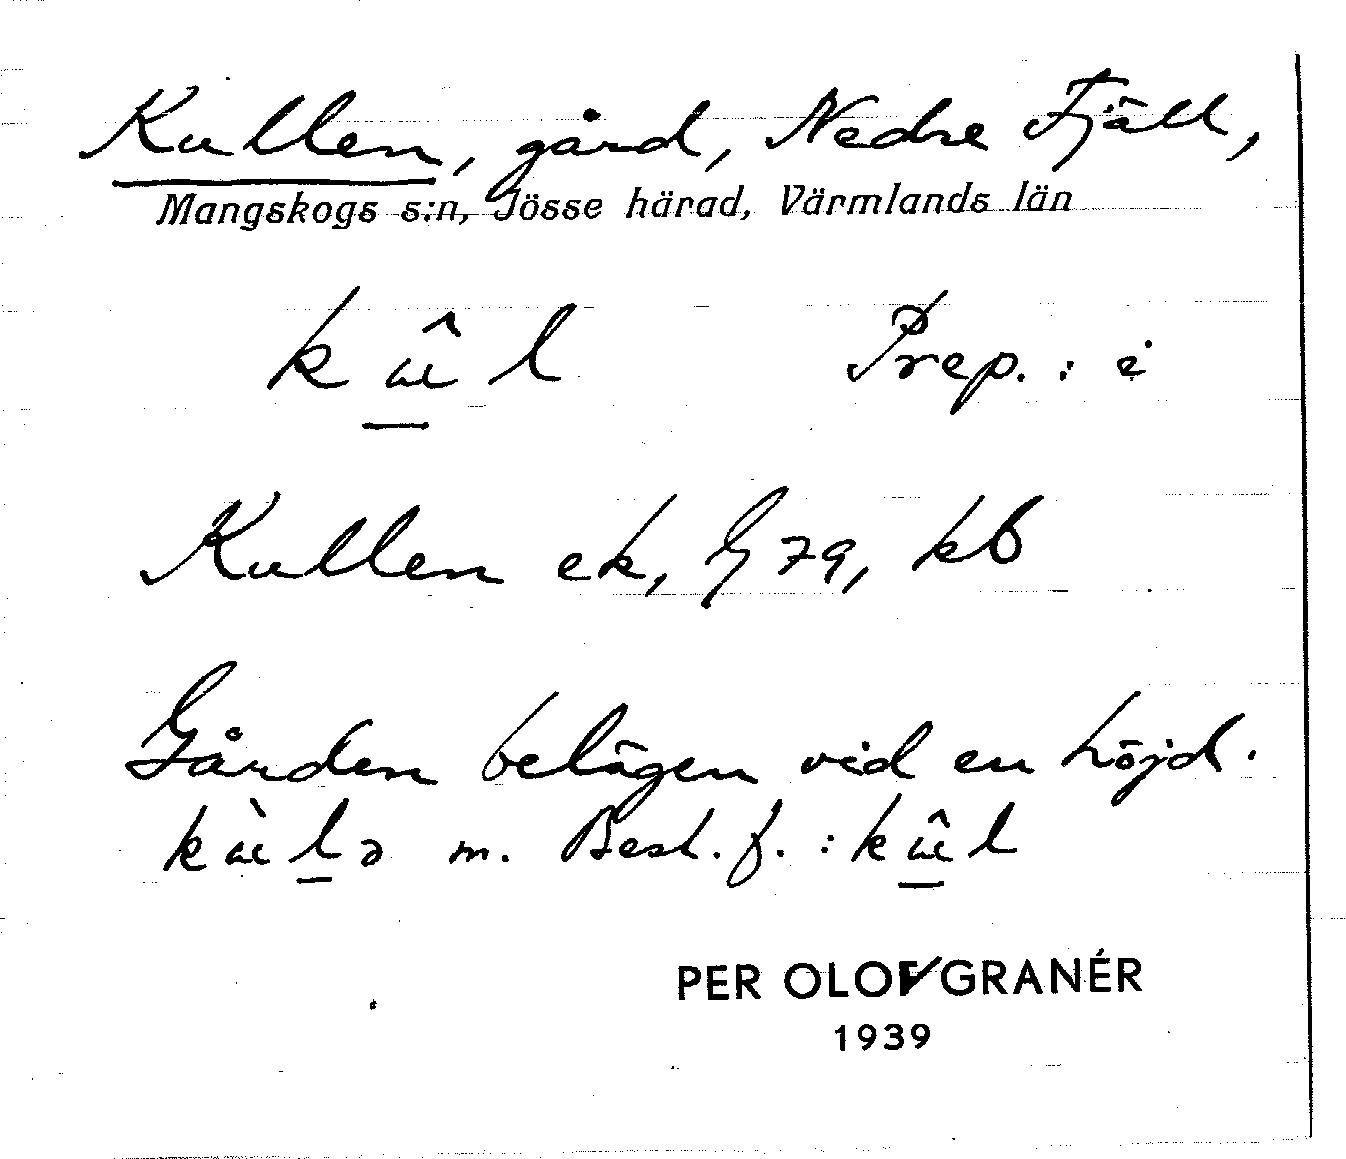 Kullen, gård, Nedre Fjäll,
Mangskogs s:n, Jösse härad, Värmlands län
Prep. : i
Kullen ek, G 79, kb
Gården belägen vid en höjd.
m. Best. f. :
PER OLOF GRANÉR
1939